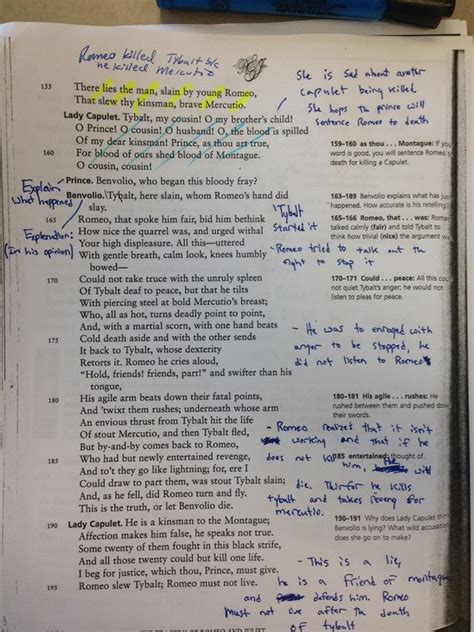 Romeo killed Tybalt b/c
he killed Mercutio
R&J
155 There lies the man, slain by young Romeo,
That slew thy kinsman, brave Mercutio.
Lady Capulet. Tybalt, my cousin! O my brother's child!
O Prince! O cousin! O husband! O, the blood is spilled
Of my dear kinsman! Prince, as thou art true,
160 For blood of ours shed blood of Montague.
O cousin, cousin!
Prince. Benvolio, who began this bloody fray?
Benvolio. Tybalt, here slain, whom Romeo's hand did
slay.
165 Romeo, that spoke him fair, bid him bethink
How nice the quarrel was, and urged withal
Your high displeasure. All this—uttered
With gentle breath, calm look, knees humbly
bowed—
170 Could not take truce with the unruly spleen
Of Tybalt deaf to peace, but that he tilts
With piercing steel at bold Mercutio's breast;
Who, all as hot, turns deadly point to point,
And, with a martial scorn, with one hand beats
175 Cold death aside and with the other sends
It back to Tybalt, whose dexterity
Retorts it. Romeo he cries aloud,
"Hold, friends! friends, part!" and swifter than his
tongue,
180 His agile arm beats down their fatal points,
And 'twixt them rushes; underneath whose arm
An envious thrust from Tybalt hit the life
Of stout Mercutio, and then Tybalt fled,
But by-and-by comes back to Romeo,
185 Who had but newly entertained revenge,
And to't they go like lightning; for, ere I
Could draw to part them, was stout Tybalt slain;
And, as he fell, did Romeo turn and fly.
This is the truth, or let Benvolio die.
190 Lady Capulet. He is a kinsman to the Montague;
Affection makes him false, he speaks not true.
Some twenty of them fought in this black strife,
And all those twenty could but kill one life.
I beg for justice, which thou, Prince, must give.
195 Romeo slew Tybalt; Romeo must not live.
Explain
what happened
Explanation:
(In his opinion)
She is sad about another
Capulet being killed.
She hops the prince will
sentence Romeo to death
159–160 as thou . . . Montague: If
word is good, you will sentence
death for killing a Capulet.
163–189 Benvolio explains what has
happened. How accurate is his retelling?
165–166 Romeo, that . . . was: Romeo
talked calmly (fair) and told Tybalt to
think how trivial (nice) the argument
Tybalt
Started it
- Romeo tried to talk out the
fight to stop it
170–171 Could . . . peace: All this could
not quiet Tybalt's anger; he would not
listen to pleas for peace.
- He was to enraged with
anger to be stopped, he
did not listen to Romeo
180–181 His agile . . . rushes: He
rushed between them and pushed down
their swords.
- Romeo realizet that it isn't
working and that if he
does not kill him, He will
185 entertained: thought of.
die. Therfor he kills
tybalt and takes reveng for
mercutio.
190–191 Why does Lady Capulet think
Benvolio is lying? What wild accusation
does she go on to make?
- This is a lie,
he is a friend of montague
and defends him. Romeo
must not live after the death
of tybalt